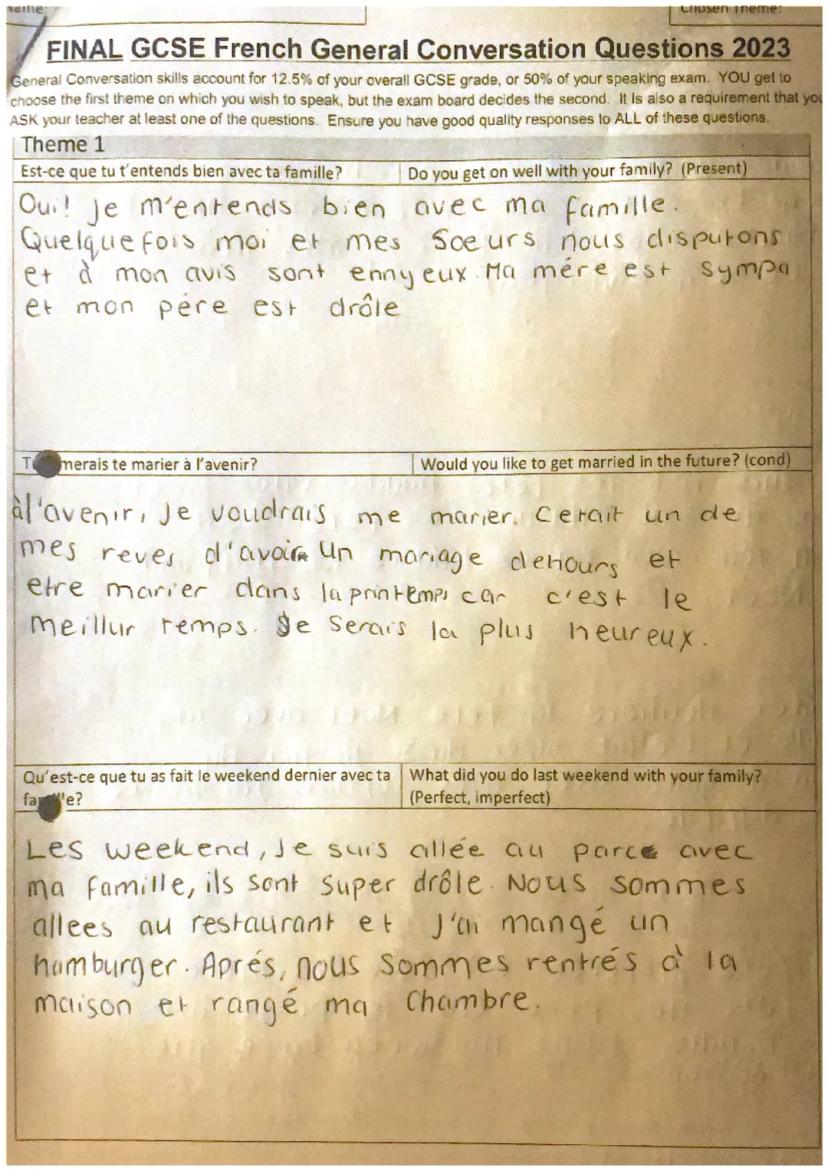 Name:
Chosen Theme:
FINAL GCSE French General Conversation Questions 2023
General Conversation skills account for 12.5% of your overall GCSE grade, or 50% of your speaking exam. YOU get to
choose the first theme on which you wish to speak, but the exam board decides the second. It is also a requirement that you
ASK your teacher at least one of the questions. Ensure you have good quality responses to ALL of these questions.
Theme 1
Est-ce que tu t'entends bien avec ta famille?
Do you get on well with your family? (Present)
Oui! je m'entends bien avec ma famille.
Quelquefois moi et mes Soeurs nous disputons
et à mon avis sont ennyeux. Ma mére est sympa
et mon pére est drôle
merais te marier à l'avenir?
Would you like to get married in the future? (cond)
à l'avenir, Je voudrais me marier. Cerait un de
mes reves d'avoir un mariage dehours et
etre marier dans la printemps car c'est le
meillur temps. Je Serais la plus heureux.
Qu'est-ce que tu as fait le weekend dernier avec ta
What did you do last weekend with your family?
(Perfect, imperfect)
Les weekend, Je suis allée au parc avec
ma famille, ils sont super drôle. Nous sommes
allees au restaurant et J'ai mangé un
hamburger. Aprés, nous Sommes rentrés à la
maison et rangé ma Chambre.